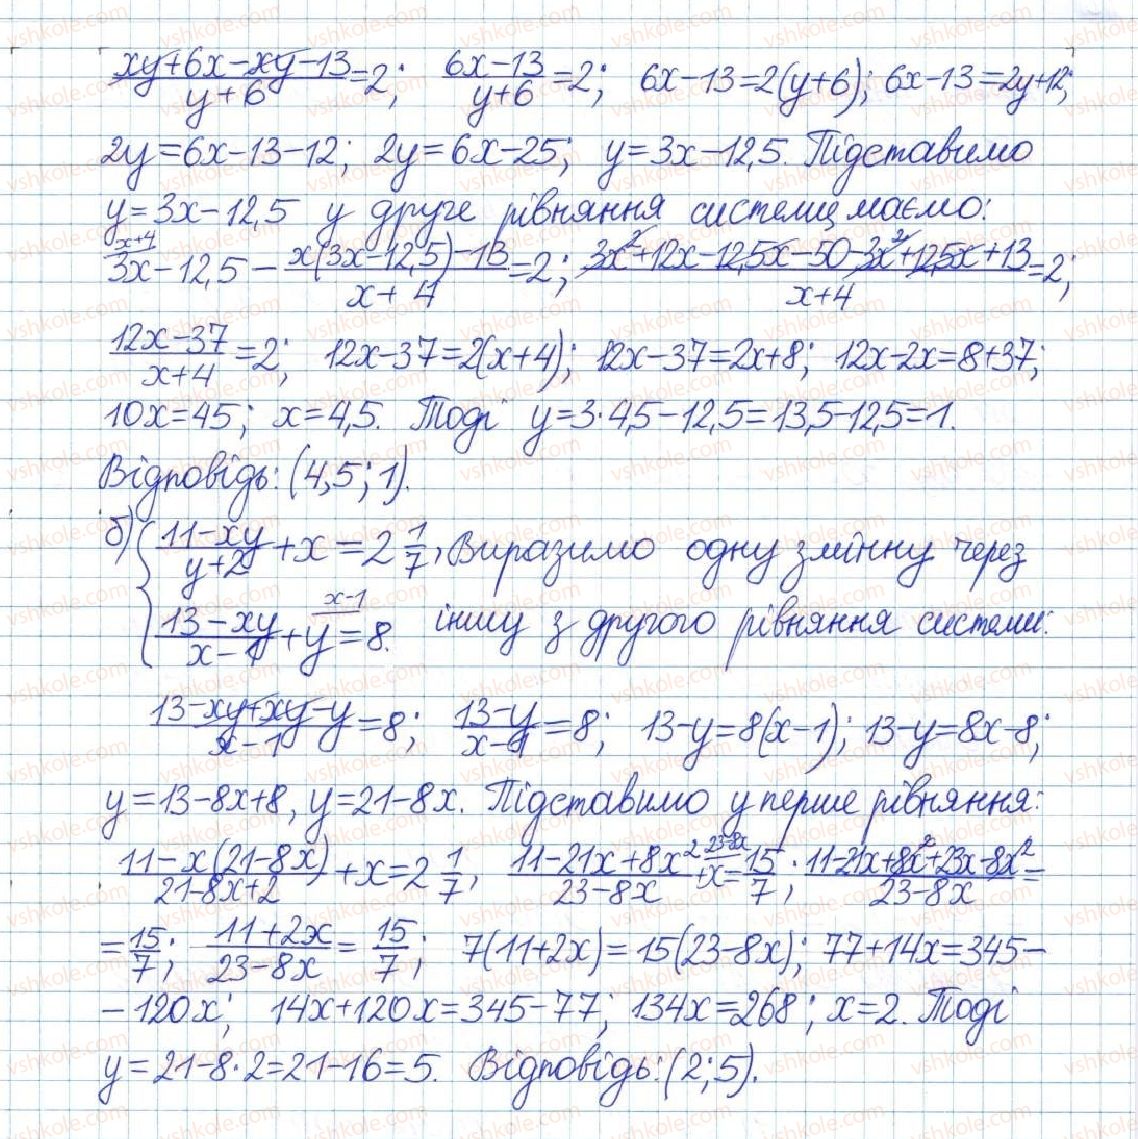 (xy+6x-xy-13)/(y+6)=2; (6x-13)/(y+6)=2; 6x-13=2(y+6); 6x-13=2y+12;
2y=6x-13-12; 2y=6x-25; y=3x-12,5. Підставимо
y=3x-12,5 у друге рівняння системи, маємо:
3x-12,5 - (x(3x-12,5)-13)/(x+4)=2; (3x²+12x-12,5x-50-3x²+12,5x+13)/(x+4)=2;
(12x-37)/(x+4)=2; 12x-37=2(x+4); 12x-37=2x+8; 12x-2x=8+37;
10x=45; x=4,5. Тоді y=3·4,5-12,5=13,5-12,5=1.
Відповідь: (4,5; 1).
б) { (11-xy)/(y+2)+x=2 1/7, Виразимо одну змінну через
(13-xy)/(x-1)+y=8. іншу з другого рівняння системи:
(13-xy+xy-y)/(x-1)=8; (13-y)/(x-1)=8; 13-y=8(x-1); 13-y=8x-8;
y=13-8x+8, y=21-8x. Підставимо у перше рівняння:
(11-x(21-8x))/(21-8x+2)+x=2 1/7, (11-21x+8x²)/(23-8x)+x=15/7; (11-21x+8x²+23x-8x²)/(23-8x)=
=15/7; (11+2x)/(23-8x)=15/7; 7(11+2x)=15(23-8x); 77+14x=345-
-120x; 14x+120x=345-77; 134x=268; x=2. Тоді
y=21-8·2=21-16=5. Відповідь: (2; 5).